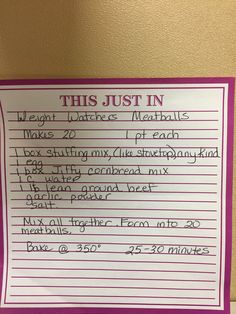 THIS JUST IN
Weight Watchers Meatballs
Makes 20 1 pt each
1 box stuffing mix, (like stovetop) any kind
1 egg
1 box Jiffy cornbread mix
1 c water
1 lb lean ground beef
garlic powder
salt
Mix all together. Form into 20
meatballs.
Bake @ 350° 25-30 minutes